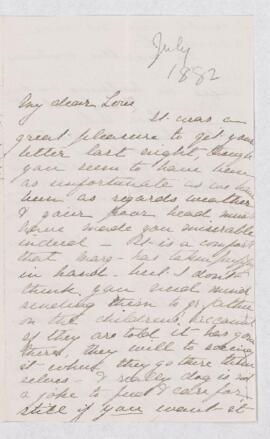 July
1882
My dear Love,
It was a
great pleasure to get your
letter last night, though
you seem to have been
as unfortunate as we have
been as regards weather
& your poor head must
have made you miserable
indeed — It is a comfort
that Mary has taken
in hand — but I don't
think you need mind
sending them to
on the children's account
if they are told it has gone
there, they will to
it when they go there them
selves — A really dog is not
a joke to find & care for
still if you want it